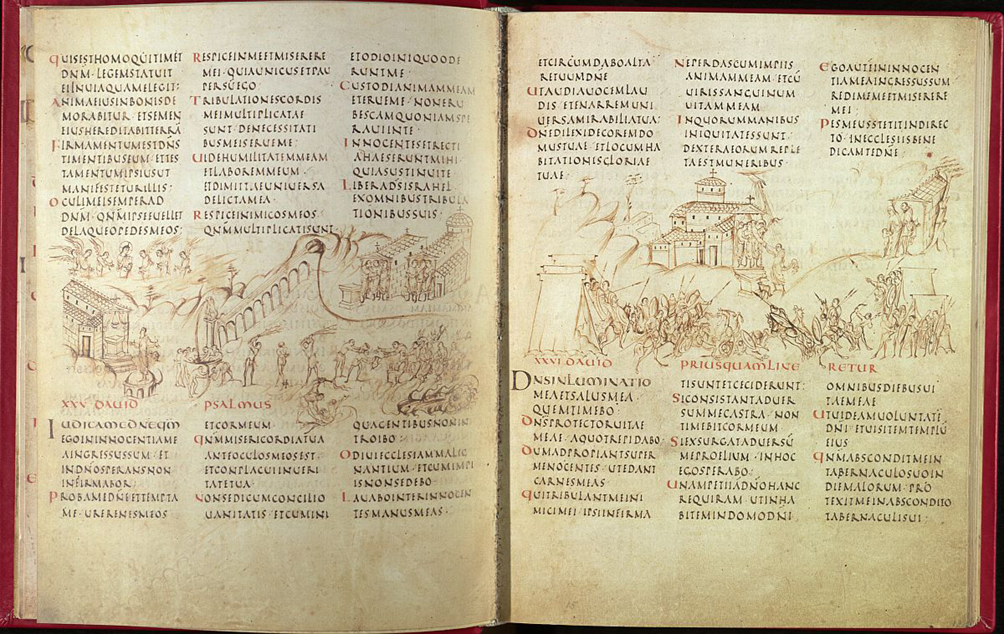 QUISESTHOMOQUITIMET
DNM·LEGEMSTATUIT
EIINUIAQUAMELEGIT:
ANIMAEIUSINBONISDE
MORABITUR·ETSEMEN
EIUSHEREDITABITTERRA
FIRMAMENTUMESTDNS
TIMENTIBUSEUM·ETTES
TAMENTUMIPSIUSUT
MANIFESTETURILLIS:
OCULIMEISEMPERAD
DNM·QNMIPSEEUELLET
DELAQUEOPEDESMEOS:
RESPICEINMEETMISERERE
MEI·QUIAUNICUSETPAU
PERSUEGO
TRIBULATIONESCORDIS
MEIMULTIPLICATAE
SUNT·DENECESSITATI
BUSMEISERUEME:
UIDEHUMILITATEMMEAM
ETLABOREMMEUM·
ETDIMITTAEUNIUERSA
DELICTAMEA·
RESPICEINIMICOSMEOS
QNMMULTIPLICATISUNT
ETODIOINIQUOODE
RUNTME·
CUSTODIANIMAMMEAM
ETERUEME·NONERU
BESCAMQUONIAMSPE
RAUIINTE·
INNOCENTESETRECTI
ADHAESERUNTMIHI·
QUIASUSTINUITE
LIBERADSISRAHEL
EXOMNIBUSTRIBULA
TIONIBUSSUIS·
XXV DAVID PSALMUS
IUDICAMEDNEQNM
EGOININNOCENTIAME
AINGRESSUSSUM·ET
INDNOSPERANSNON
INFIRMABOR·
PROBAMEDNEETTEMPTA
ME·URERENESMEOS
ETCORMEUM·
QNMMISERICORDIATUA
ANTEOCULOSMEOSEST·
ETCONPLACUIINUERI
TATETUA·
NONSEDICUMCONCILIO
UANITATIS·ETCUMINI
QUAGENTIBUSNONIN
TROIBO·
ODIUIECCLESIAMMALIG
NANTIUM·ETCUMIMPI
ISNONSEDEBO·
LAUABOINTERINNOCEN
TESMANUSMEAS·
ETCIRCUMDABOALTA
RETUUMDNE
UTAUDIAUOCEMLAU
DIS·ETENARREMUNI
UERSAMIRABILIATUA:
DNEDILEXIDECOREMDO
MUSTUAE·ETLOCUMHA
BITATIONISGLORIAE
TUAE·
NEPERDASCUMIMPIIS
ANIMAMMEAM·ETCU
UIRISSANGUINUM
UITAMMEAM
INQUORUMMANIBUS
INIQUITATESSUNT·
DEXTERAEORUMREPLE
TAESTMUNERIBUS·
EGOAUTEMININNOCEN
TIAMEAINGRESSUSSUM
REDIMEMEETMISERERE
MEI·
PESMEUSSTETITINDIREC
TO·INECCLESIISBENE
DICAMTEDNE·
XXVI DAVID PRIUSQUAMLINE RETUR
DNSINLUMINATIO
MEAETSALUSMEA·
QUEMTIMEBO·
DNSPROTECTORUITAE
MEAE·AQUOTREPIDABO·
DUMADPROPIANTSUPER
MENOCENTES·UTEDANT
CARNESMEAS·
QUITRIBULANTMEINI
MICIMEI·IPSIINFIRMA
TISUNTETCECIDERUNT:
SICONSISTANTADUER
SUMMECASTRA·NON
TIMEBITCORMEUM·
SIEXSURGATADUERSU
MEPROELIUM·INHOC
EGOSPERABO·
UNAMPETIIADNOHANC
REQUIRAM·UTINHA
BITEMINDOMODNI
OMNIBUSDIEBUSUI
TAEMEAE·
UTUIDEAMUOLUNTATE
DNI·ETUISITEMTEMPLU
EIUS·
QNMABSCONDITMEIN
TABERNACULOSUOIN
DIEMALORUM·PRO
TEXITMEINABSCONDITO
TABERNACULISUI·